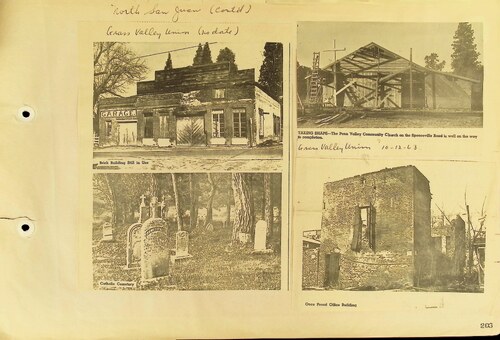 North San Juan (Cont'd)
Grass Valley Union (no date)
GARAGE
Brick Building Still in Use
Catholic Cemetery
TAKING SHAPE—The Penn Valley Community Church on the Spenceville Road is well on the way
to completion.
Grass Valley Union 10-23-63
Once Proud Office Building
203